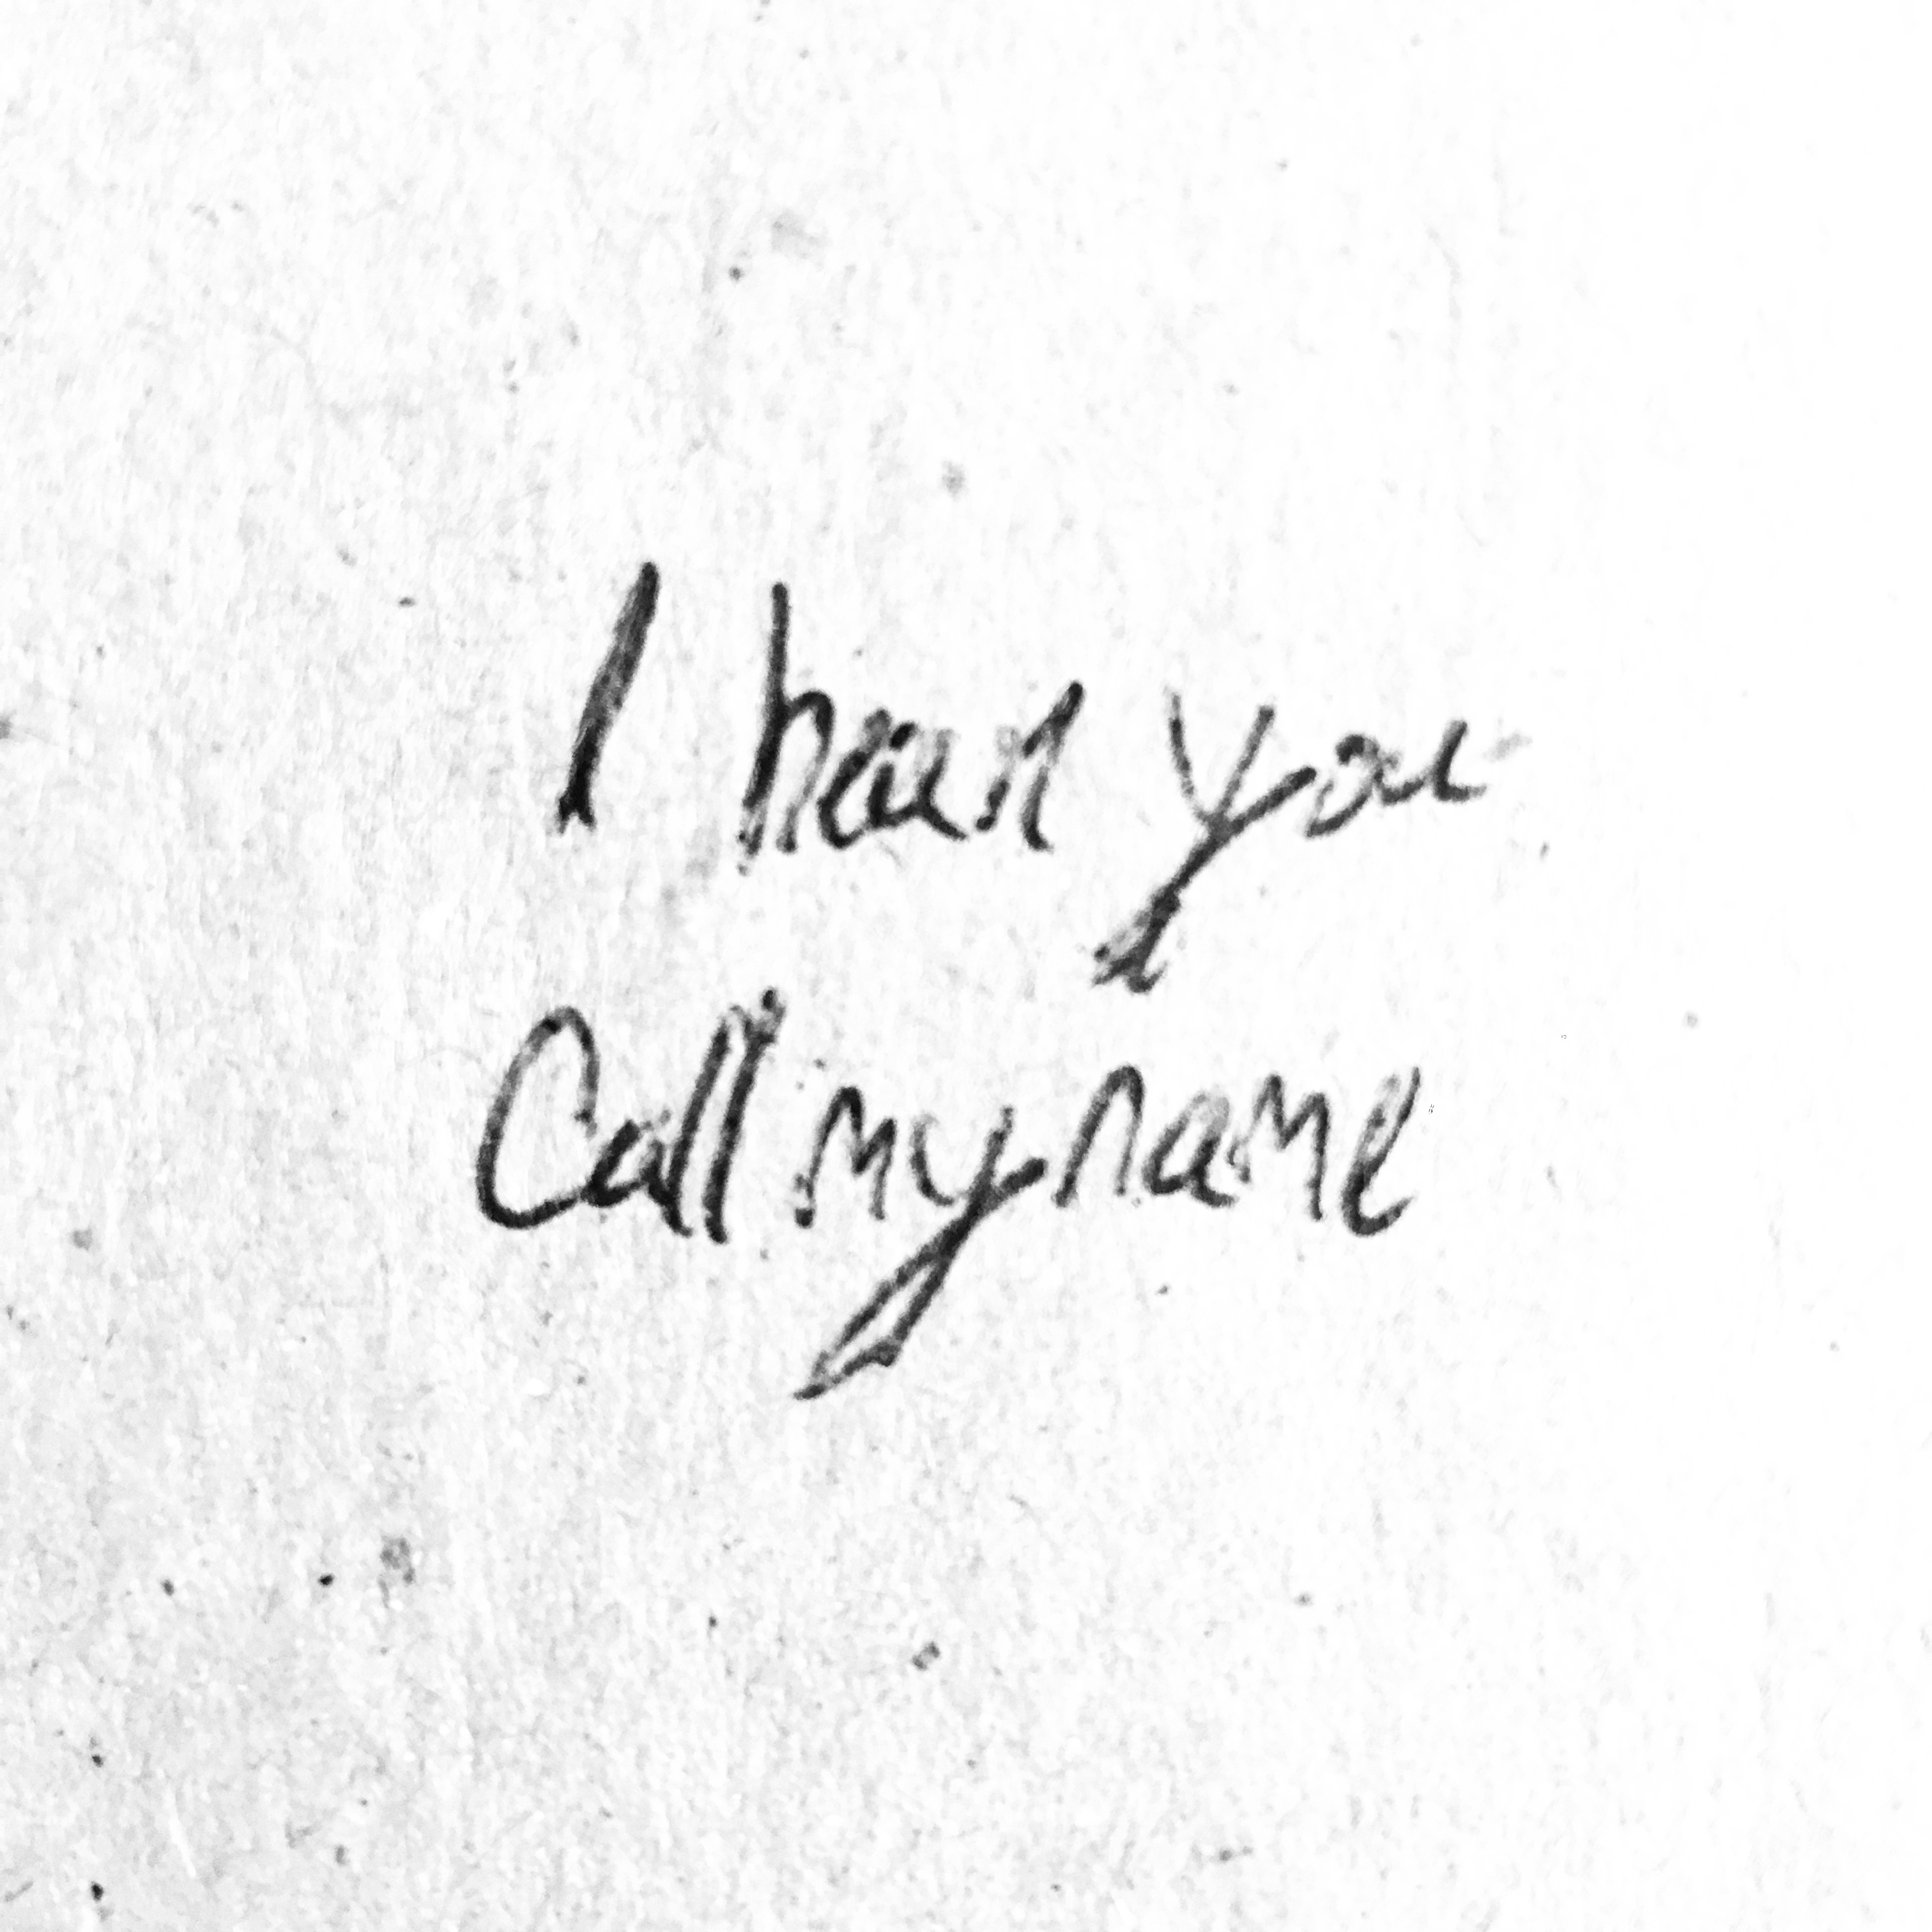 I hear you
Call my name